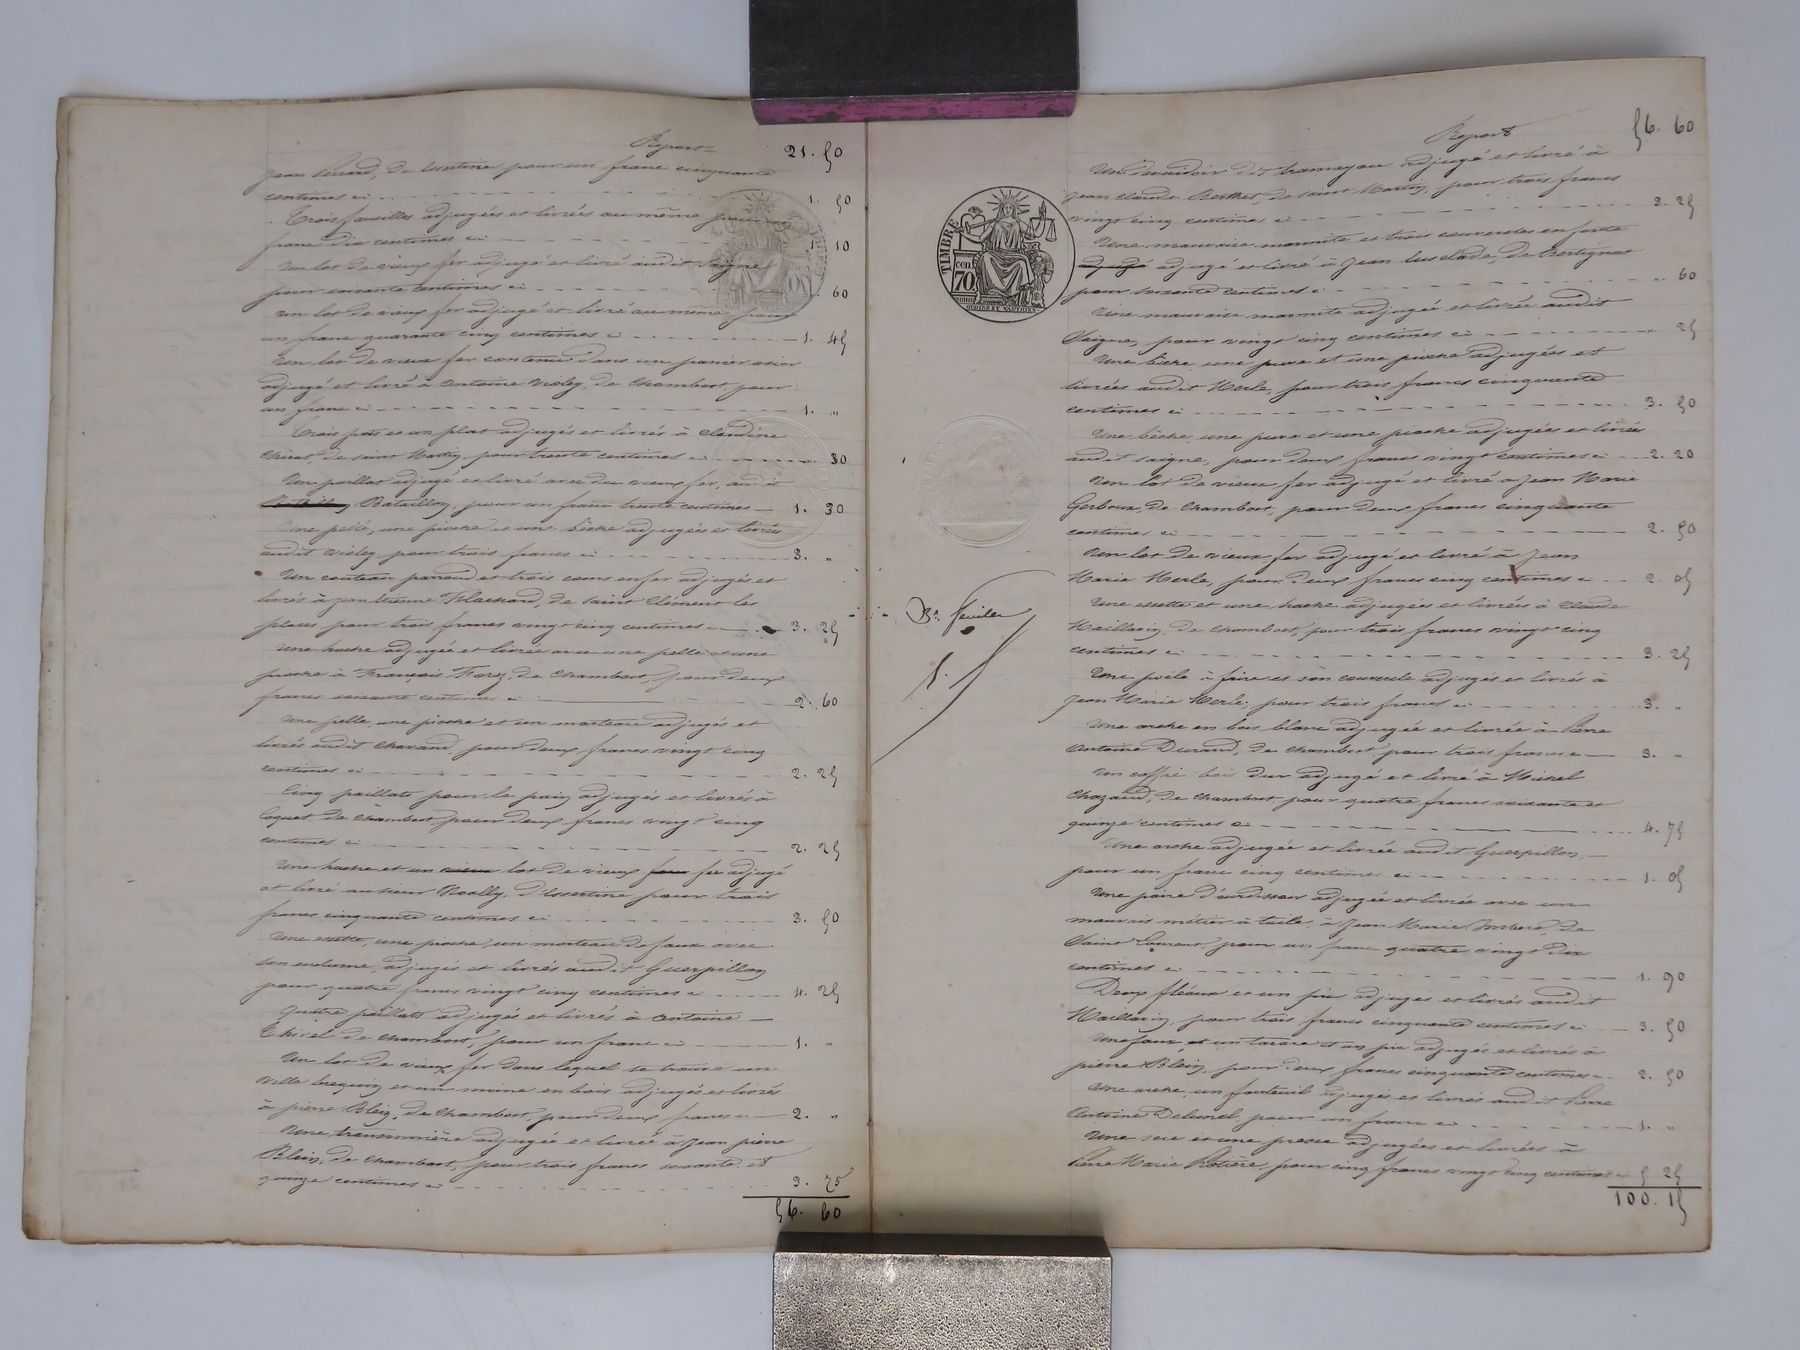 Report 21. 50
Jean Girard, de Essertine pour un franc cinquante
centimes ci 1. 50
Trois faucilles adjugées et livrées au même pour un
franc dix centimes ci 1. 10
Un lot de vieux fer adjugé et livré audit Saigne
pour soixante centimes ci ". 60
Un lot de vieux fer adjugé et livré au même pour
un franc quarante cinq centimes ci 1. 45
Un lot de vieux fer contenu dans un panier osier
adjugé et livré à Antoine Violey, de Chambost, pour
un franc ci 1. "
Trois pots et un plat adjugés et livrés à Claudine
de Saint Martin, pour trente centimes ci ". 30
Un paillat adjugé et livré avec du vieux fer, audit
Bataillon, pour un franc trente centimes 1. 30
Une pelle, une pioche et une bèche adjugées et livrées
audit Violey, pour trois francs ci 3. "
Un couteau paroud et trois coins en fer adjugés et
livrés à Jean Etienne Flachard, de Saint Clément les
places pour trois francs vingt cinq centimes ci 3. 25
Une hache adjugée et livrée avec une pelle et une
pioche à François Forez, de Chambost, pour deux
francs soixante centimes ci 2. 60
Une pelle, une pioche et un marteau adjugés et
livrés audit Chavand, pour deux francs vingt cinq
centimes ci 2. 25
Cinq paillats pour le pain adjugés et livrés à
Coquet de Chambost, pour deux francs vingt cinq
centimes ci 2. 25
Une hache et un vieux lot de vieux fer adjugé
et livré au sieur Noally, d'Essertine pour trois
francs cinquante centimes ci 3. 50
Une essette, une pioche, un marteau de faux avec
son enclume, adjugés et livrés audit Guerpillon
pour quatre francs vingt cinq centimes ci 4. 25
Quatre paillats adjugés et livrés à Antoine
Thivel de Chambost, pour un franc ci 1. "
Un lot de vieux fer dans lequel se trouve un
ville brequin et un mine en bois adjugés et livrés
à pierre Blein, de Chambost, pour deux francs ci 2. "
Une transonnière adjugée et livrée à Jean pierre
Blein, de Chambost, pour trois francs soixante et
quinze centimes ci 3. 75
56. 60
Report 56. 60
Un dévidoir dit tramayou adjugé et livré à
Jean Claude Berthet, de Saint Martin, pour trois francs
vingt cinq centimes ci 3. 25
Une mauvaise marmite et trois couvercles en fonte
adjugé adjugé et livré à Jean de
pour soixante centimes ci ". 60
Une mauvaise marmite adjugée et livrée audit
Saigne, pour vingt cinq centimes ci ". 25
Une bèche, une pure et une pioche adjugées et
livrées audit Merle, pour trois francs cinquante
centimes ci 3. 50
Une bèche, une pure et une pioche adjugées et livrées
audit Saigne, pour deux francs vingt centimes ci 2. 20
Un lot de vieux fer adjugé et livré à Jean Marie
Gerboux, de Chambost, pour deux francs cinquante
centimes ci 2. 50
Un lot de vieux fer adjugé et livré à Jean
Marie Merle, pour deux francs cinq centimes ci 2. 05
Une essette et une hache adjugées et livrées à Claude
Maillavin, de Chambost, pour trois francs vingt cinq
centimes ci 3. 25
Une poële à frire et son couvercle adjugés et livrés à
Jean Marie Merle, pour trois francs ci 3. "
Une arche en bois blanc adjugée et livrée à Pierre
Antoine Durand, de Chambost pour trois francs ci 3. "
Un coffre bois dur adjugé et livré à Michel
Chazaud, de Chambost pour quatre francs soixante et
quinze centimes ci 4. 75
Une arche adjugée et livrée audit Guerpillon,
pour un franc cinq centimes ci 1. 05
Une paire d'ourdissoir adjugée et livrée avec un
mauvais métier à toile, à Jean Marie Imbert, de
Saint Laurent, pour un franc quatre vingt dix
centimes ci 1. 90
Deux fléaux et un pic adjugés et livrés audit
Maillavin, pour trois francs cinquante centimes ci 3. 50
Une faux, et un tavare et un pic adjugés et livrés à
pierre Blein, pour deux francs cinquante centimes 2. 50
Une arche, un fauteuil adjugés et livrés audit Pierre
Antoine Delunel, pour un franc ci 1. "
Une scie et une presse adjugées et livrées à
Pierre Marie Rotière, pour cinq francs vingt cinq centimes 5 25
100. 15
TIMBRE
cen
70
3e. feuillet